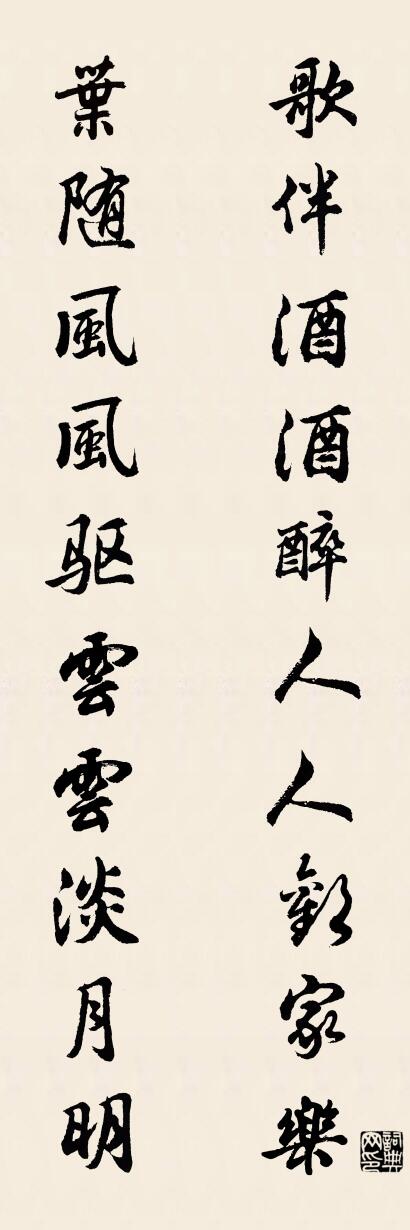 歌伴酒酒醉人人歡家樂
葉随風風驱雲雲淡月明
詞典网印